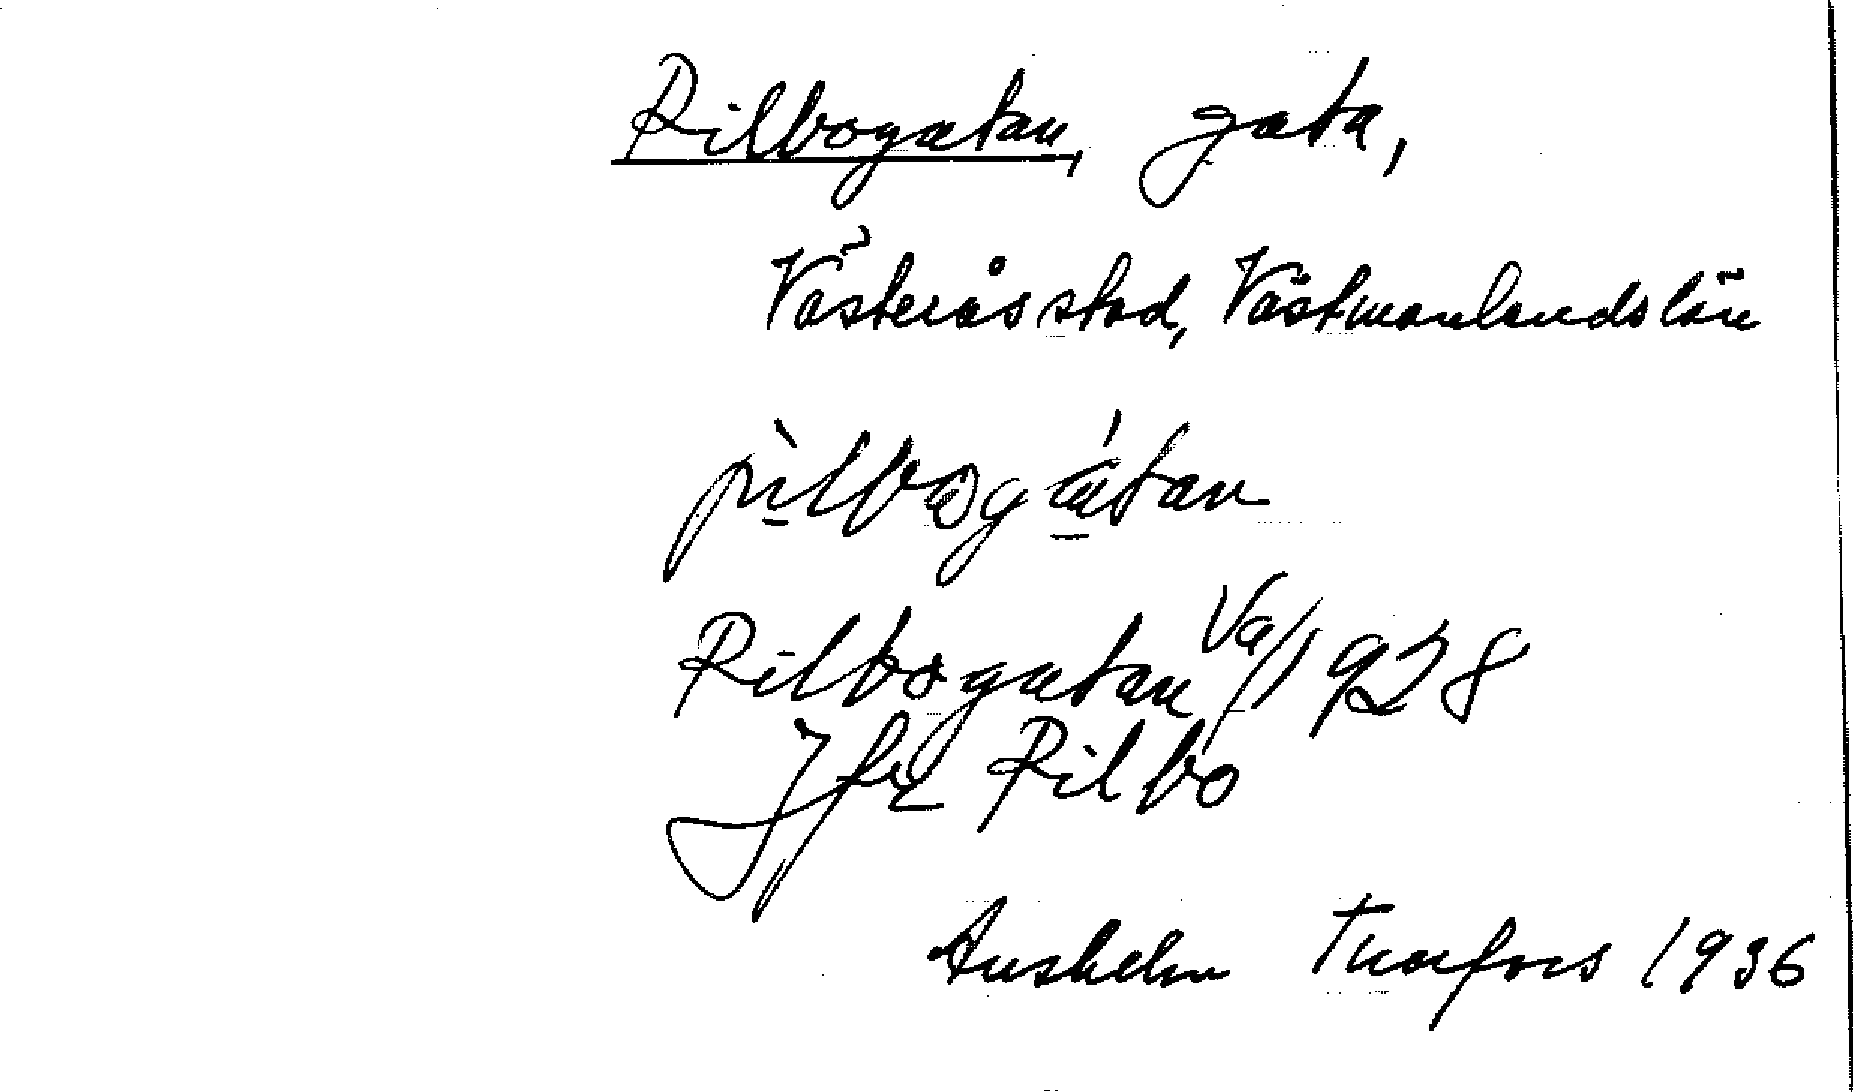 Pilbogatan, gata,
Västerås stad, Västmanlands län
pìlbogátan
Pilbogatan Va/1928
Jfr Pilbo
1936